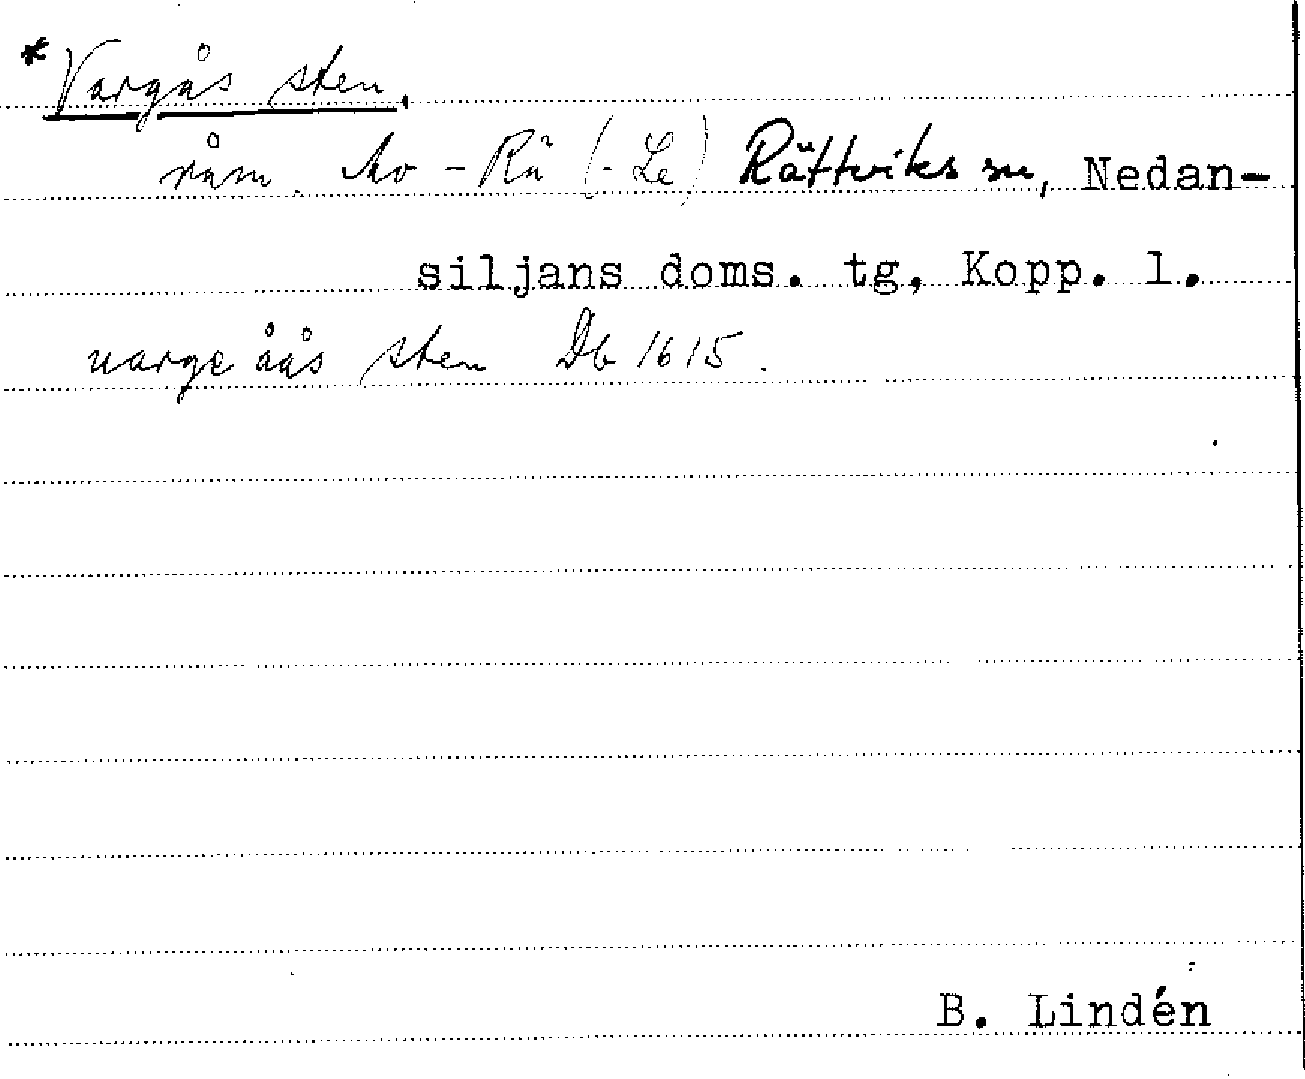 *Vargås sten.
råm. Mo - Rä (- Le) Rättviks sn, Nedan-
siljans doms. tg, Kopp. l.
uarge åås sten Db 1615.
B. Lindén